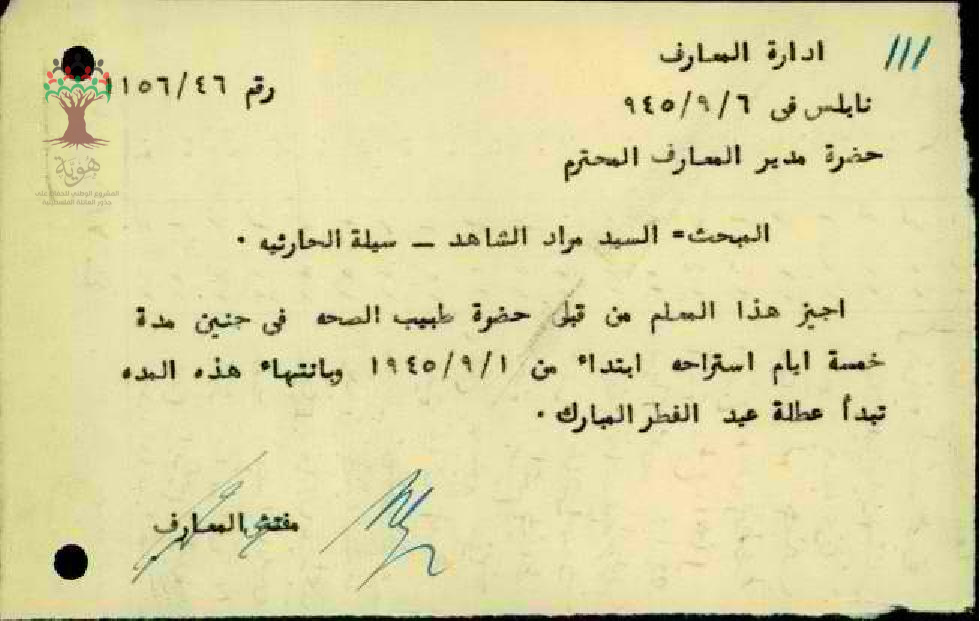 ادارة المعارف
١١١
رقم ١١٥٦/٤٦
نابلس فى ٩٤٥/٩/٦
حضرة مدير المعارف المحترم
هُوِيَّة
المشروع الوطني للحفاظ على
جذور العائلة الفلسطينية
المبحث= السيد مراد الشاهد ــ سيلة الحارثيه ٠
اجيز هذا المعلم من قبل حضرة طبيب الصحه فى جنين مدة
خمسة ايام استراحه ابتداء من ١٩٤٥/٩/١ وبانتهاء هذه المده
تبدأ عطلة عيد الفطر المبارك ٠
مفتش المعارف